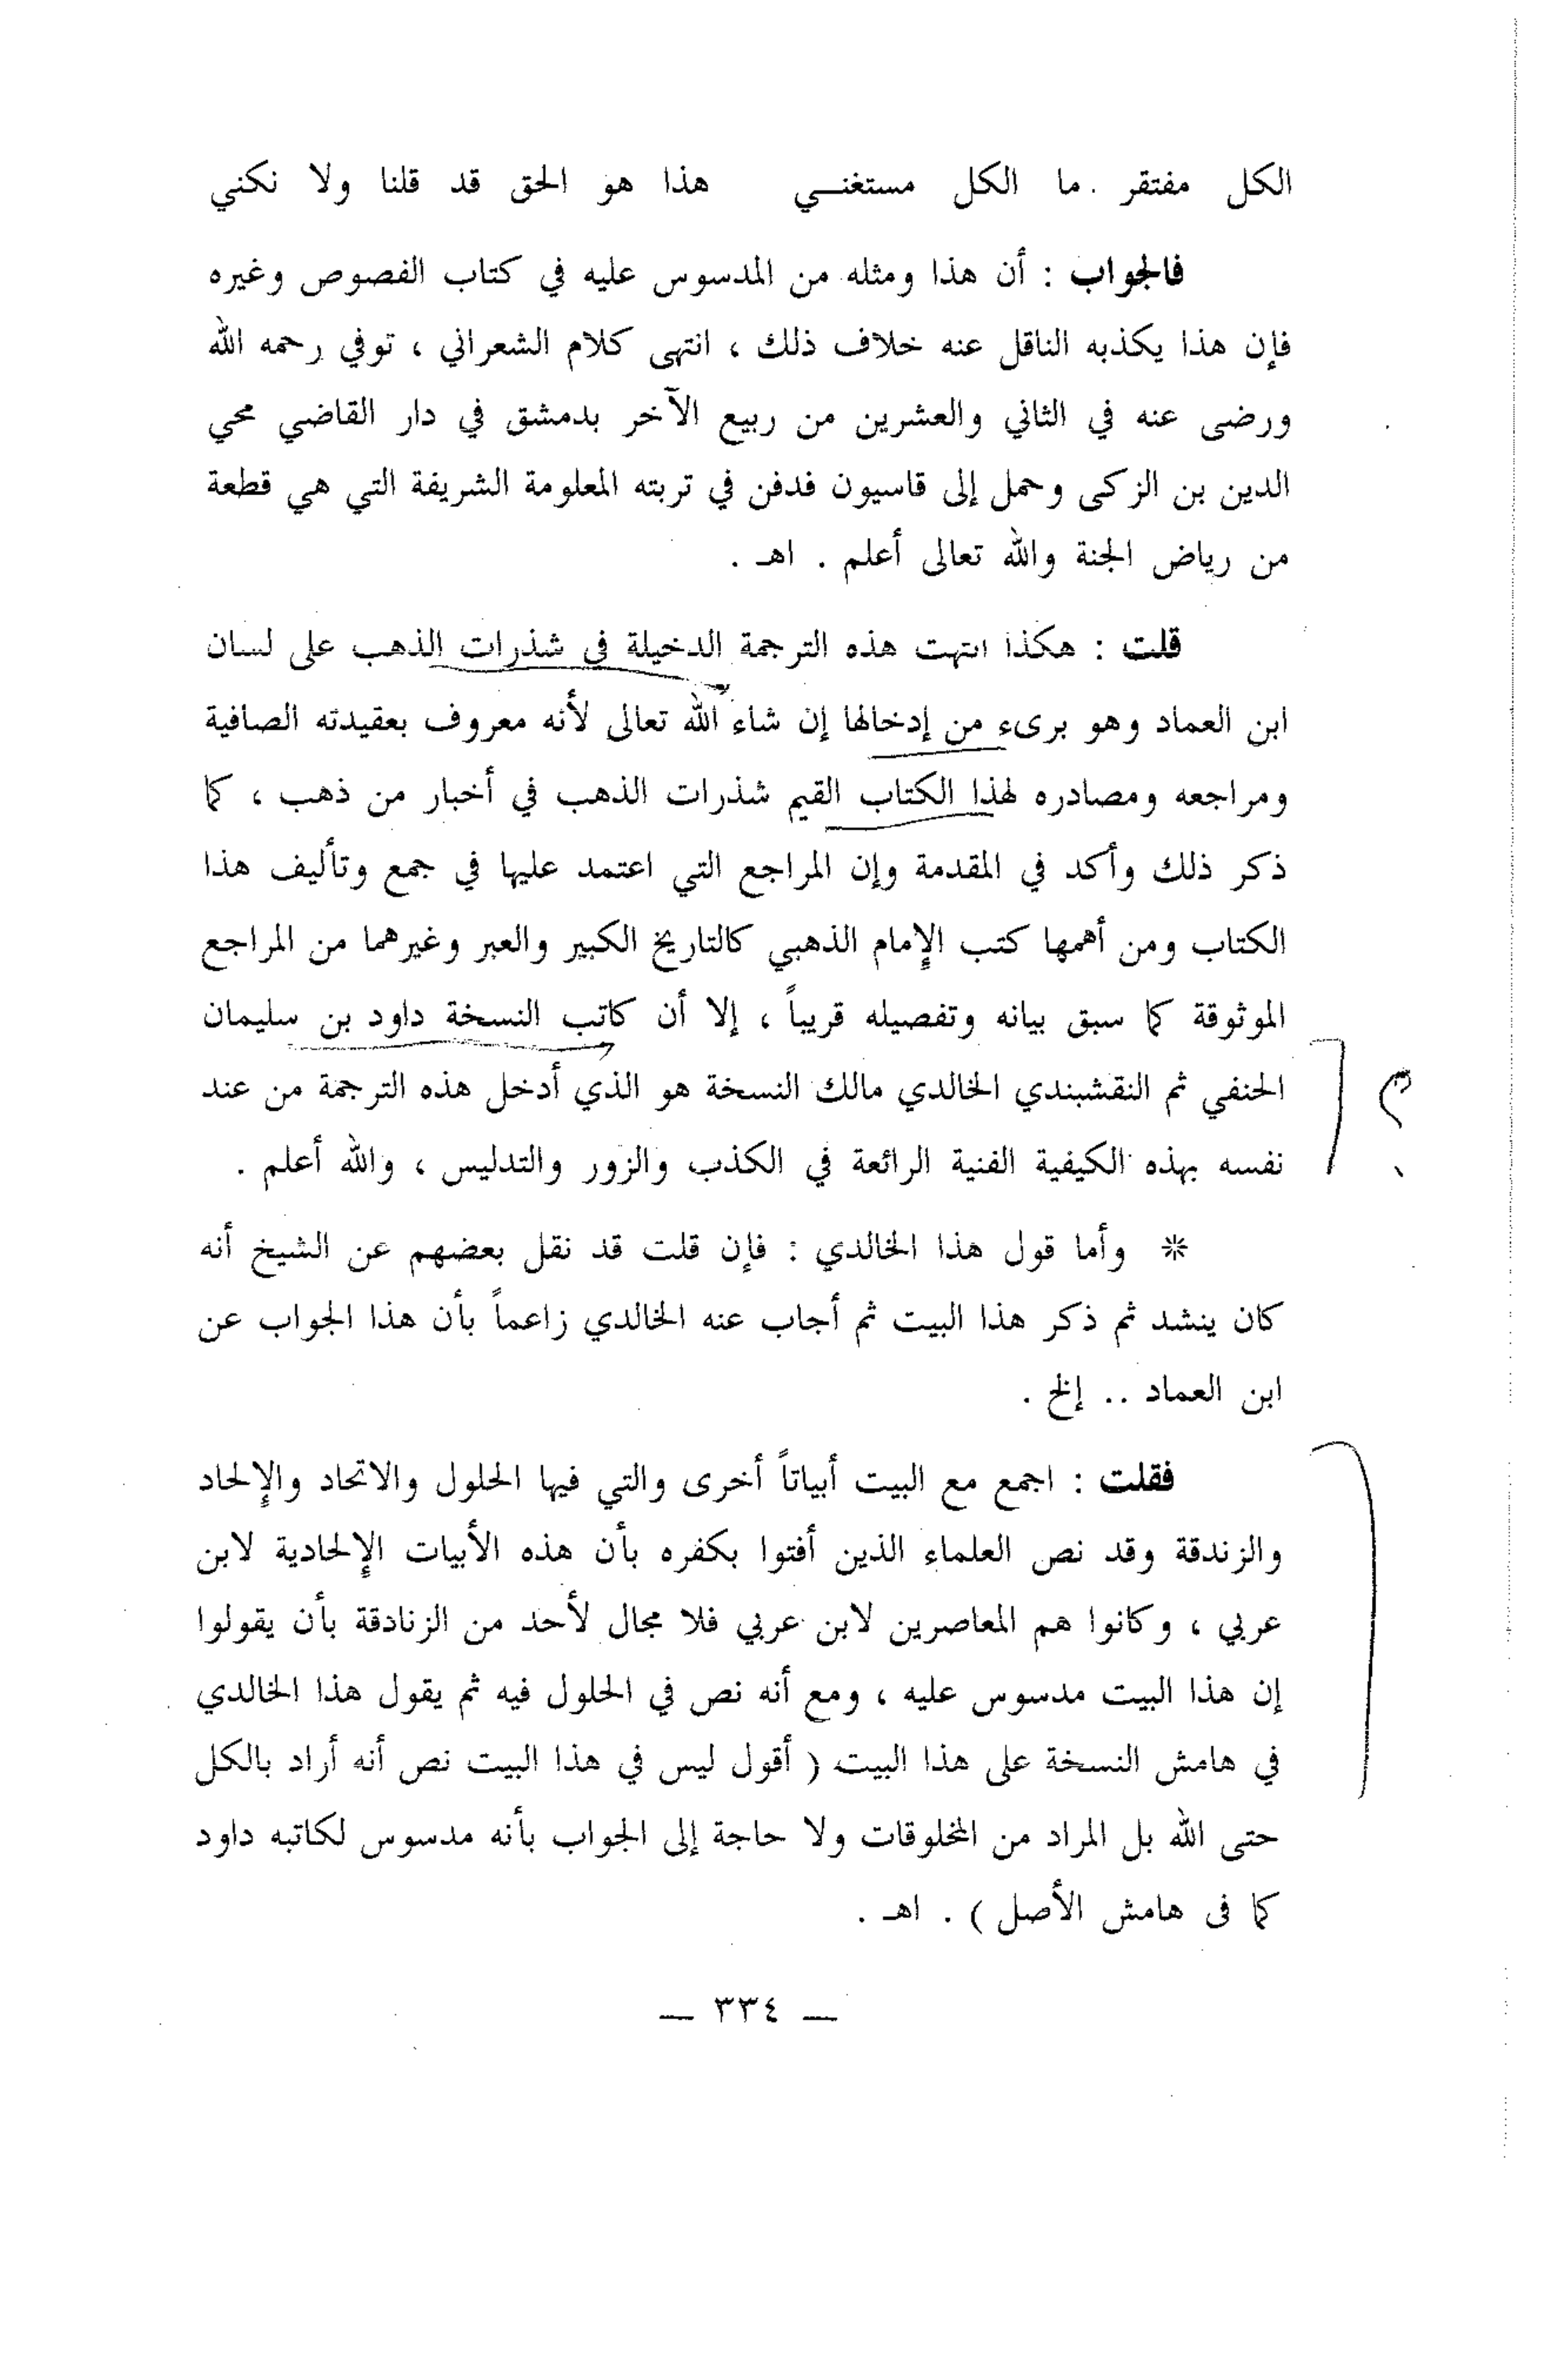 الكل مفتقر . ما الكل مستغنـــي هذا هو الحق قد قلنا ولا نكني
فالجواب : أن هذا ومثله من المدسوس عليه في كتاب الفصوص وغيره
فإن هذا يكذبه الناقل عنه خلاف ذلك ، انتهى كلام الشعراني ، توفي رحمه الله
ورضى عنه في الثاني والعشرين من ربيع الآخر بدمشق في دار القاضي محي
الدين بن الزكى وحمل إلى قاسيون فدفن في تربته المعلومة الشريفة التي هي قطعة
من رياض الجنة والله تعالى أعلم . اهـ .
قلت : هكذا انتهت هذه الترجمة الدخيلة في شذرات الذهب على لسان
ابن العماد وهو برىء من إدخالها إن شاء الله تعالى لأنه معروف بعقيدته الصافية
ومراجعه ومصادره لهذا الكتاب القيم شذرات الذهب في أخبار من ذهب ، كما
ذكر ذلك وأكد في المقدمة وإن المراجع التي اعتمد عليها في جمع وتأليف هذا
الكتاب ومن أهمها كتب الإمام الذهبي كالتاريخ الكبير والعبر وغيرهما من المراجع
الموثوقة كما سبق بيانه وتفصيله قريباً ، إلا أن كاتب النسخة داود بن سليمان
الحنفي ثم النقشبندي الخالدي مالك النسخة هو الذي أدخل هذه الترجمة من عند
نفسه بهذه الكيفية الفنية الرائعة في الكذب والزور والتدليس ، والله أعلم .
* وأما قول هذا الخالدي : فإن قلت قد نقل بعضهم عن الشيخ أنه
كان ينشد ثم ذكر هذا البيت ثم أجاب عنه الخالدي زاعماً بأن هذا الجواب عن
ابن العماد .. إلخ .
فقلت : اجمع مع البيت أبياتاً أخرى والتي فيها الحلول والاتحاد والإلحاد
والزندقة وقد نص العلماء الذين أفتوا بكفره بأن هذه الأبيات الإلحادية لابن
عربي ، وكانوا هم المعاصرين لابن عربي فلا مجال لأحد من الزنادقة بأن يقولوا
إن هذا البيت مدسوس عليه ، ومع أنه نص في الحلول فيه ثم يقول هذا الخالدي
في هامش النسخة على هذا البيت ( أقول ليس في هذا البيت نص أنه أراد بالكل
حتى الله بل المراد من المخلوقات ولا حاجة إلى الجواب بأنه مدسوس لكاتبه داود
كما فى هامش الأصل ) . اهـ .
— ٣٣٤ —
؟